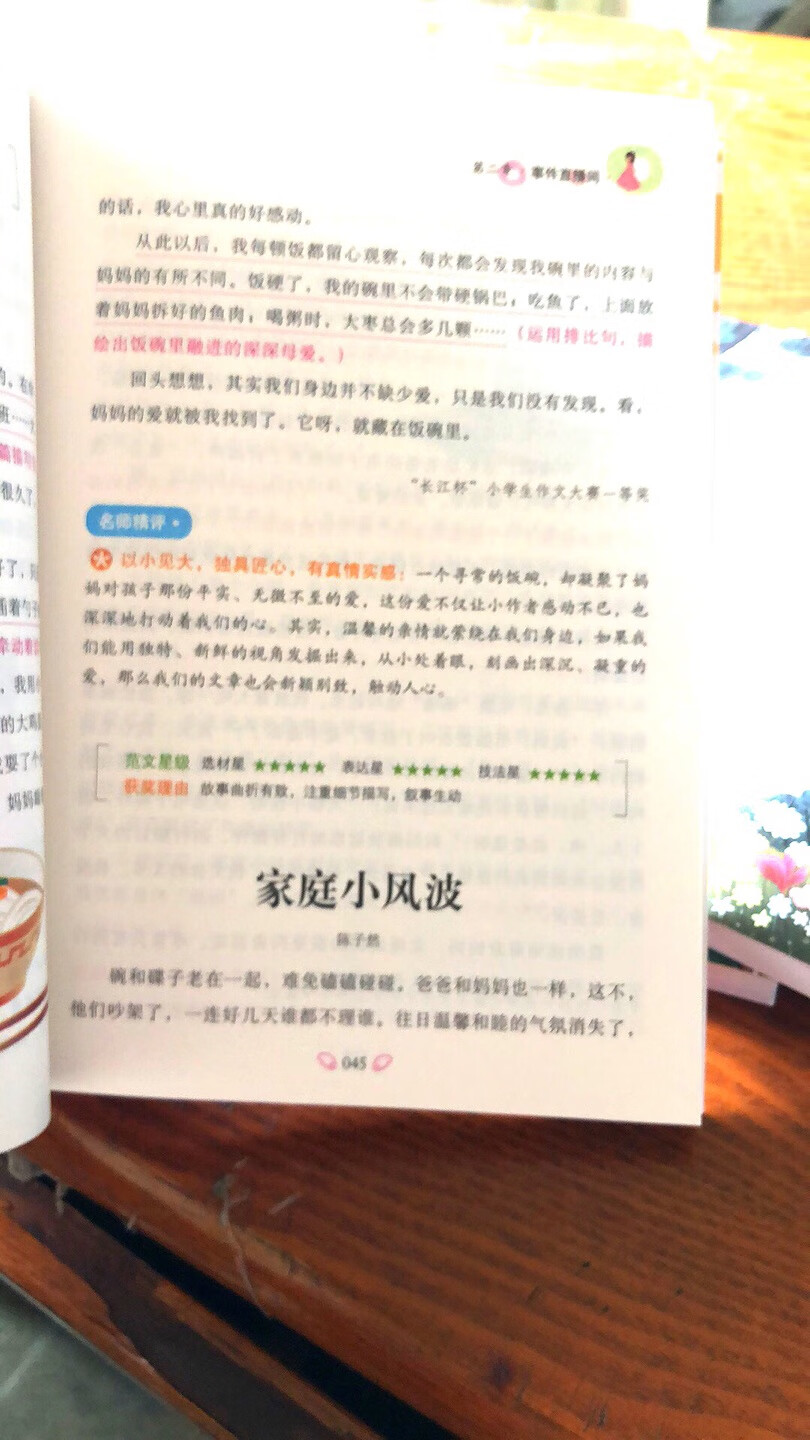 第二章 事件直播间
的话，我心里真的好感动。
从此以后，我每顿饭都留心观察，每次都会发现我碗里的内容与
妈妈的有所不同。饭硬了，我的碗里不会带硬锅巴；吃鱼了，上面放
着妈妈拆好的鱼肉；喝粥时，大枣总会多几颗……（运用排比句，描
绘出饭碗里融进的深深母爱。）
回头想想，其实我们身边并不缺少爱，只是我们没有发现。看，
妈妈的爱就被我找到了。它呀，就藏在饭碗里。
“长江杯”小学生作文大赛一等奖
名师精评
以小见大，独具匠心，有真情实感：一个寻常的饭碗，却凝聚了妈
妈对孩子那份平实、无微不至的爱，这份爱不仅让小作者感动不已，也
深深地打动着我们的心。其实，温馨的亲情就萦绕在我们身边，如果我
们能用独特、新鲜的视角发掘出来，从小处着眼，刻画出深沉、凝重的
爱，那么我们的文章也会新颖别致，触动人心。
范文星级 选材星 ★★★★★ 表达星 ★★★★★ 技法星 ★★★★★
获奖理由 故事曲折有致，注重细节描写，叙事生动
家庭小风波
陈子然
碗和碟子老在一起，难免磕磕碰碰。爸爸和妈妈也一样，这不，
他们吵架了，一连好几天谁都不理谁。往日温馨和睦的气氛消失了，
045